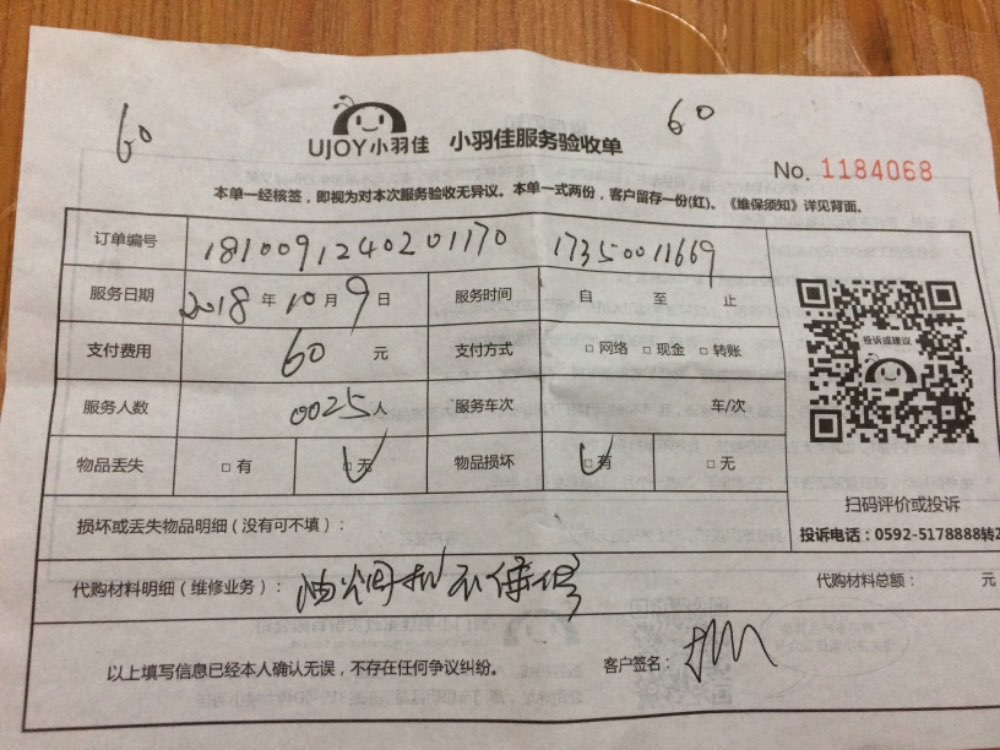 60
60
UJOY小羽佳 小羽佳服务验收单
No. 1184068
本单一经核签，即视为对本次服务验收无异议。本单一式两份，客户留存一份(红)。《维保须知》详见背面。
订单编号 181009124020 1170 17350011669
服务日期 2018 年 10 月 9 日 服务时间 自 至 止
投诉或建议
支付费用 60 元 支付方式 □ 网络 □ 现金 □ 转账
服务人数 0025 人 服务车次 车/次
物品丢失 □ 有 □ 无 物品损坏 □ 有 □ 无
扫码评价或投诉
损坏或丢失物品明细（没有可不填）：
投诉电话：0592-5178888转2
代购材料明细（维修业务）： 油烟机不保修 代购材料总额： 元
以上填写信息已经本人确认无误，不存在任何争议纠纷。 客户签名：